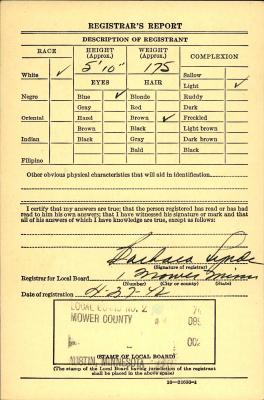 REGISTRAR'S REPORT
DESCRIPTION OF REGISTRANT
RACE HEIGHT (Approx.) WEIGHT (Approx.) COMPLEXION
White ✓ 5' 10" 175 Sallow
EYES HAIR Light ✓
Negro Blue ✓ Blonde Ruddy
Gray Red Dark
Oriental Hazel Brown ✓ Freckled
Brown Black Light brown
Indian Black Gray Dark brown
Bald Black
Filipino
Other obvious physical characteristics that will aid in identification
I certify that my answers are true; that the person registered has read or has had
read to him his own answers; that I have witnessed his signature or mark and that
all of his answers of which I have knowledge are true, except as follows:
Barbara
(Signature of registrar)
Registrar for Local Board 1 Mower Minn
(Number) (City or county) (State)
Date of registration
LOCAL BOARD NO. 2
MOWER COUNTY
AUSTIN, MINNESOTA
(STAMP OF LOCAL BOARD)
(The stamp of the Local Board having jurisdiction of the registrant
shall be placed in the above space)